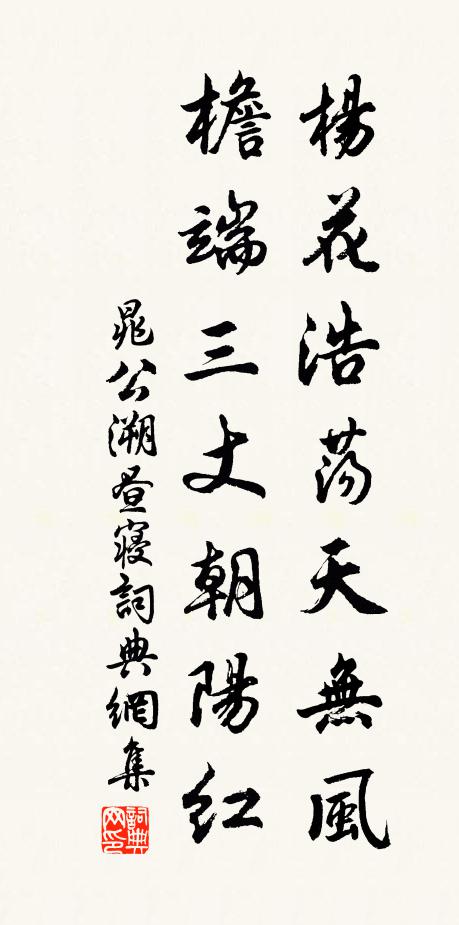 楊花浩蕩天無風
檐端三丈朝陽紅
晁公溯晝寢詞典網集
詞典网印